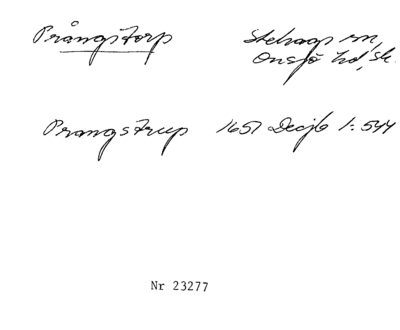 Prångstorp Stehags sn,
Onsjö hd, Sk.
Prangstrup 1651 Decjb 1:544
Nr 23277